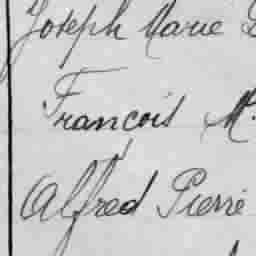 Joseph Marie
François M.
Alfred Pierre